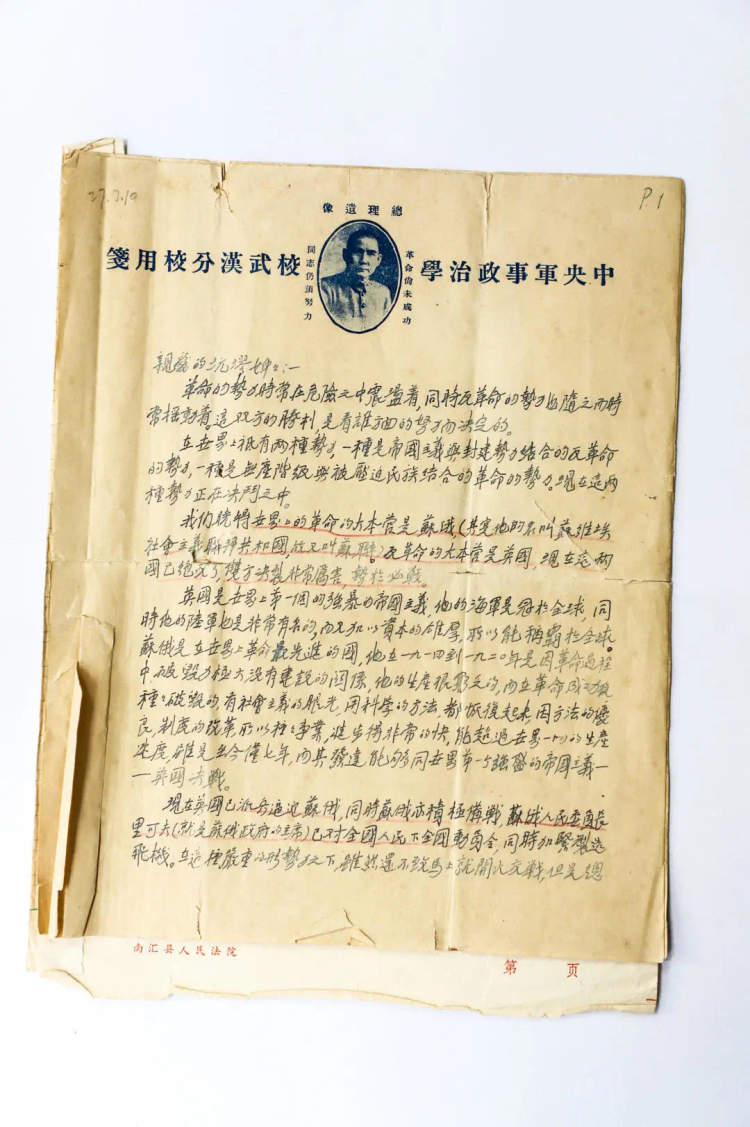 27.7.10
P.1
總理遺像
革命尚未成功
同志仍須努力
中央軍事政治學校武漢分校用箋
親愛的
革命的勢力時常在危險之中震盪着，同時反革命的勢力也隨之而時
常搖動着。這双方的勝利，是看誰方面的努力而決定的。
在世界上祇有兩種勢力，一種是帝國主義與封建勢力結合的反革命
的勢力，一種是無產階級與被壓迫民族结合的革命的勢力。現在這兩
種勢力正在決鬥之中。
我们曉得世界上的革命的大本营是蘇俄，(其實他的名叫蘇維埃
社會主義聯邦共和國，故又叫蘇聯)反革命的大本营是英國，現在這兩
國已絕交了，雙方決裂非常厲害，勢於必戰。
英國是世界上第一個的強暴的帝國主義，他的海軍是冠於全球，同
時他的陸軍也是非常有名的，而又加以資本的雄厚，所以能稱霸於全球。
蘇俄是在世界上革命最先進的國，他在一九一四到一九二〇年是因革命過程
中，破毀力極大没有建設的関係，他的生產很窮乏的，而在革命成功後
種種破毀的，有社會主義的眼光，用科學的方法，都恢復起來，因方法的優
良，制度的改革，所以種種事業，進步得非常的快，能超過世界一切的生產
速度，雖是至今僅七年，而其發達能够同世界第一个強盛的帝國主義—
—英國決戰。
現在英國已派兵逼近蘇俄，同時蘇俄亦積極備戰，蘇俄人民委員長
里可夫(就是蘇俄政府的主席)已对全國人民下全國動員令，同時加緊製造
飛機。在這種嚴重的形勢之下，雖然還不致馬上就開火交戰，但是總
南汇县人民法院
第 页